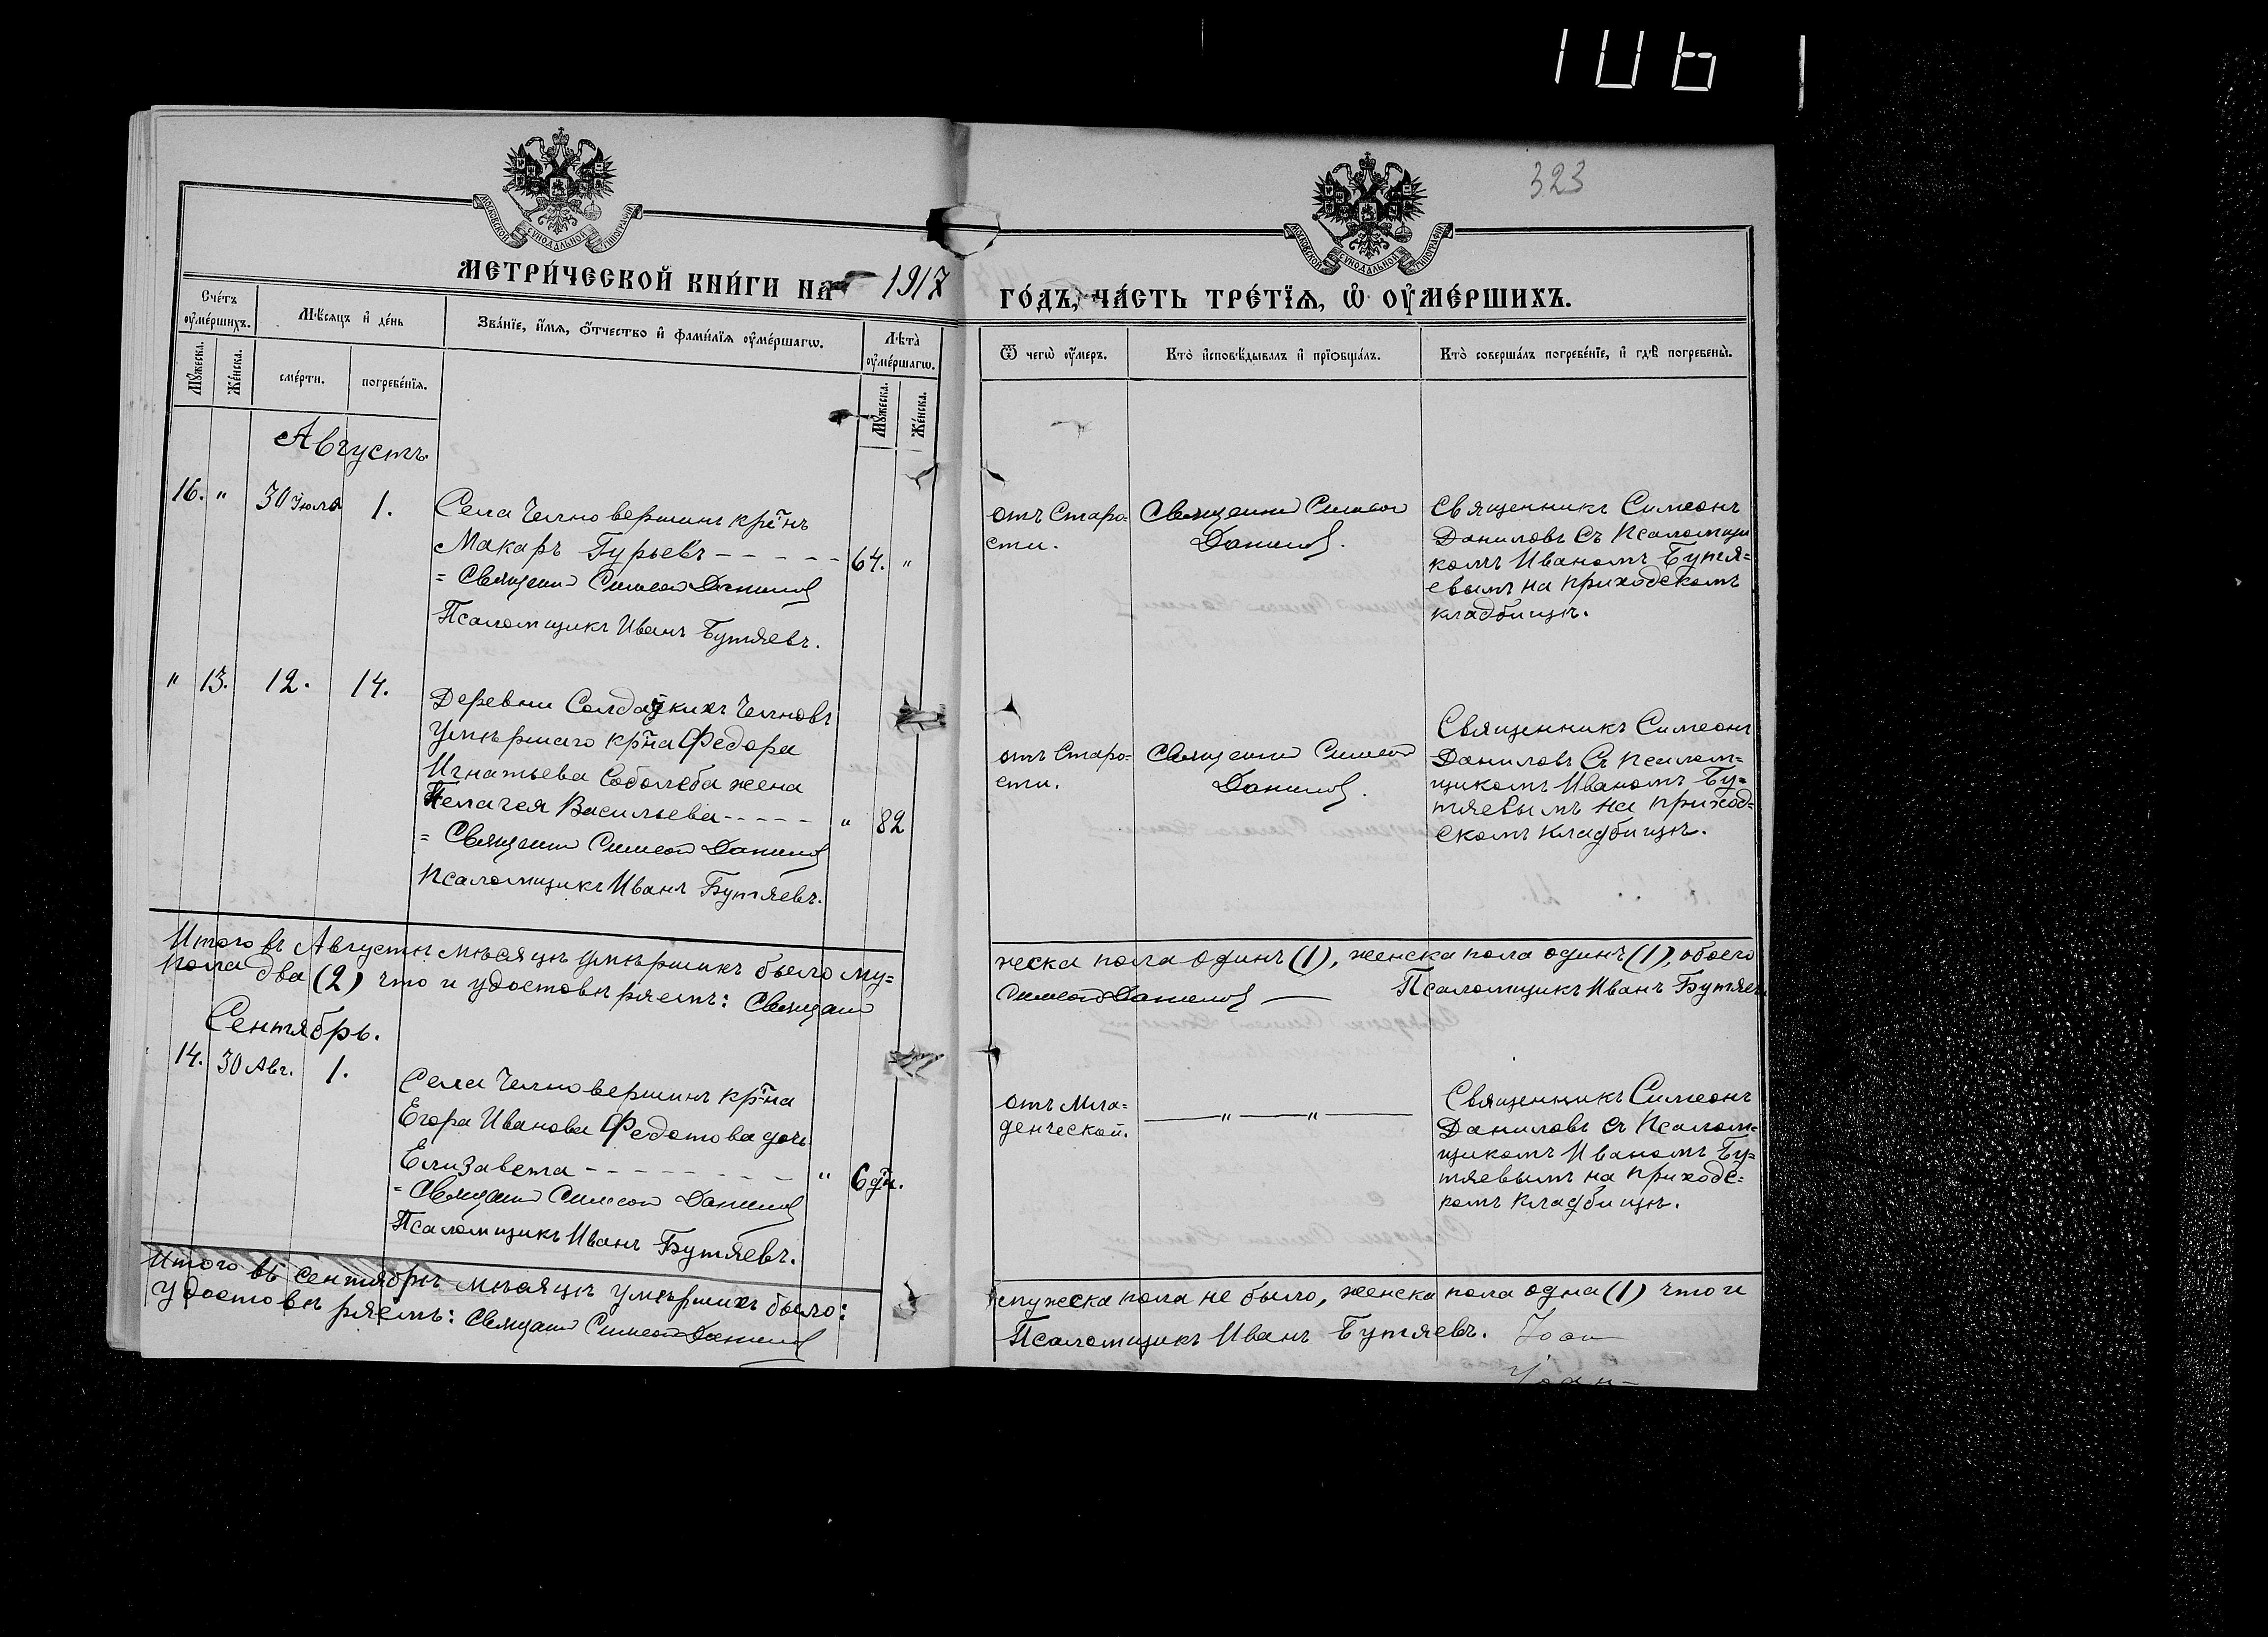 1 0 6
323
МОСКОВСКОЙ СѴНОДАЛЬНОЙ ТИПОГРАФІИ
МОСКОВСКОЙ СѴНОДАЛЬНОЙ ТИПОГРАФІИ
МЕТРИ́ЧЕСКОЙ КНИ́ГИ НА 1917
ГО́ДЪ, ЧА́СТЬ ТРЕ́ТЇѦ, Ѽ ОУ҆МЕ́РШИХЪ.
Сче́тъ оу҆ме́ршихъ.
Мꙋ́жеска.
Же́нска.
Мѣ́сяцъ и҆ де́нь
сме́рти.
погребе́нїѧ.
Зва́нїе, и҆́мѧ, ѻ҆́тчество и҆ фами́лїѧ оу҆ме́ршагѡ.
Лѣ́та оу҆ме́ршагѡ.
Мꙋ́жеска.
Же́нска.
Ѿ чегѡ̀ оу҆́меръ.
Кто̀ и҆сповѣ́дывалъ и҆ прїѡбща́лъ.
Кто̀ соверша́лъ погребе́нїе, и҆ гдѣ̀ погребены̀.
Августъ.
16. " 30 Іюля 1.
Села Челновершинъ кр҃інъ
Макаръ Гурьевъ - - - - - 64. "
= Священни Симеон Данилов
Псаломщикъ Иванъ Бутяевъ.
отъ Старо=
сти.
Священни Симеон
Данилов.
Священникъ Симеонъ
Даниловъ съ псаломщи
комъ Иваномъ Бутя=
евымъ на приходскомъ
кладбищѣ.
" 13. 12. 14.
Деревни Солдатскихъ Челновъ
умѣршаго кр҃на Федора
Игнатьева Соболева жена
Пелагея Васильева - - - - - " 82
= Священни Симеон Данилов
Псаломщикъ Иванъ Бутяевъ.
отъ Старо=
сти.
Священни Симеон
Данилов.
Священникъ Симеонъ
Даниловъ съ псалом=
щикомъ Иваномъ Бу=
тяевымъ на приход=
скомъ кладбищѣ.
Итого въ Августѣ мѣсяцѣ умѣршихъ было му=
жеска пола одинъ (1), женска пола одинъ (1), обоего
пола два (2) что и удостовѣряемъ: Священни
Симеон Данилов — Псаломщикъ Иванъ Бутяевъ
Сентябрь.
14. 30 Авг. 1.
Села Челновершинъ кр҃на
Егора Иванова Федотова дочь
Елизавета - - - - - - - - " 6 дн.
= Священни Симеон Данилов
Псаломщикъ Иванъ Бутяевъ.
отъ Мла=
денческой.
— " — " —
Священникъ Симеонъ
Даниловъ съ Псалом=
щикомъ Иваномъ Бу=
тяевымъ на приходс=
комъ кладбищѣ.
Итого въ сентябрѣ мѣсяцѣ умѣршихъ было:
мужеска пола не было, женска пола одна (1) что и
удостовѣряемъ: Священни Симеон Данилов
Псаломщикъ Иванъ Бутяевъ.